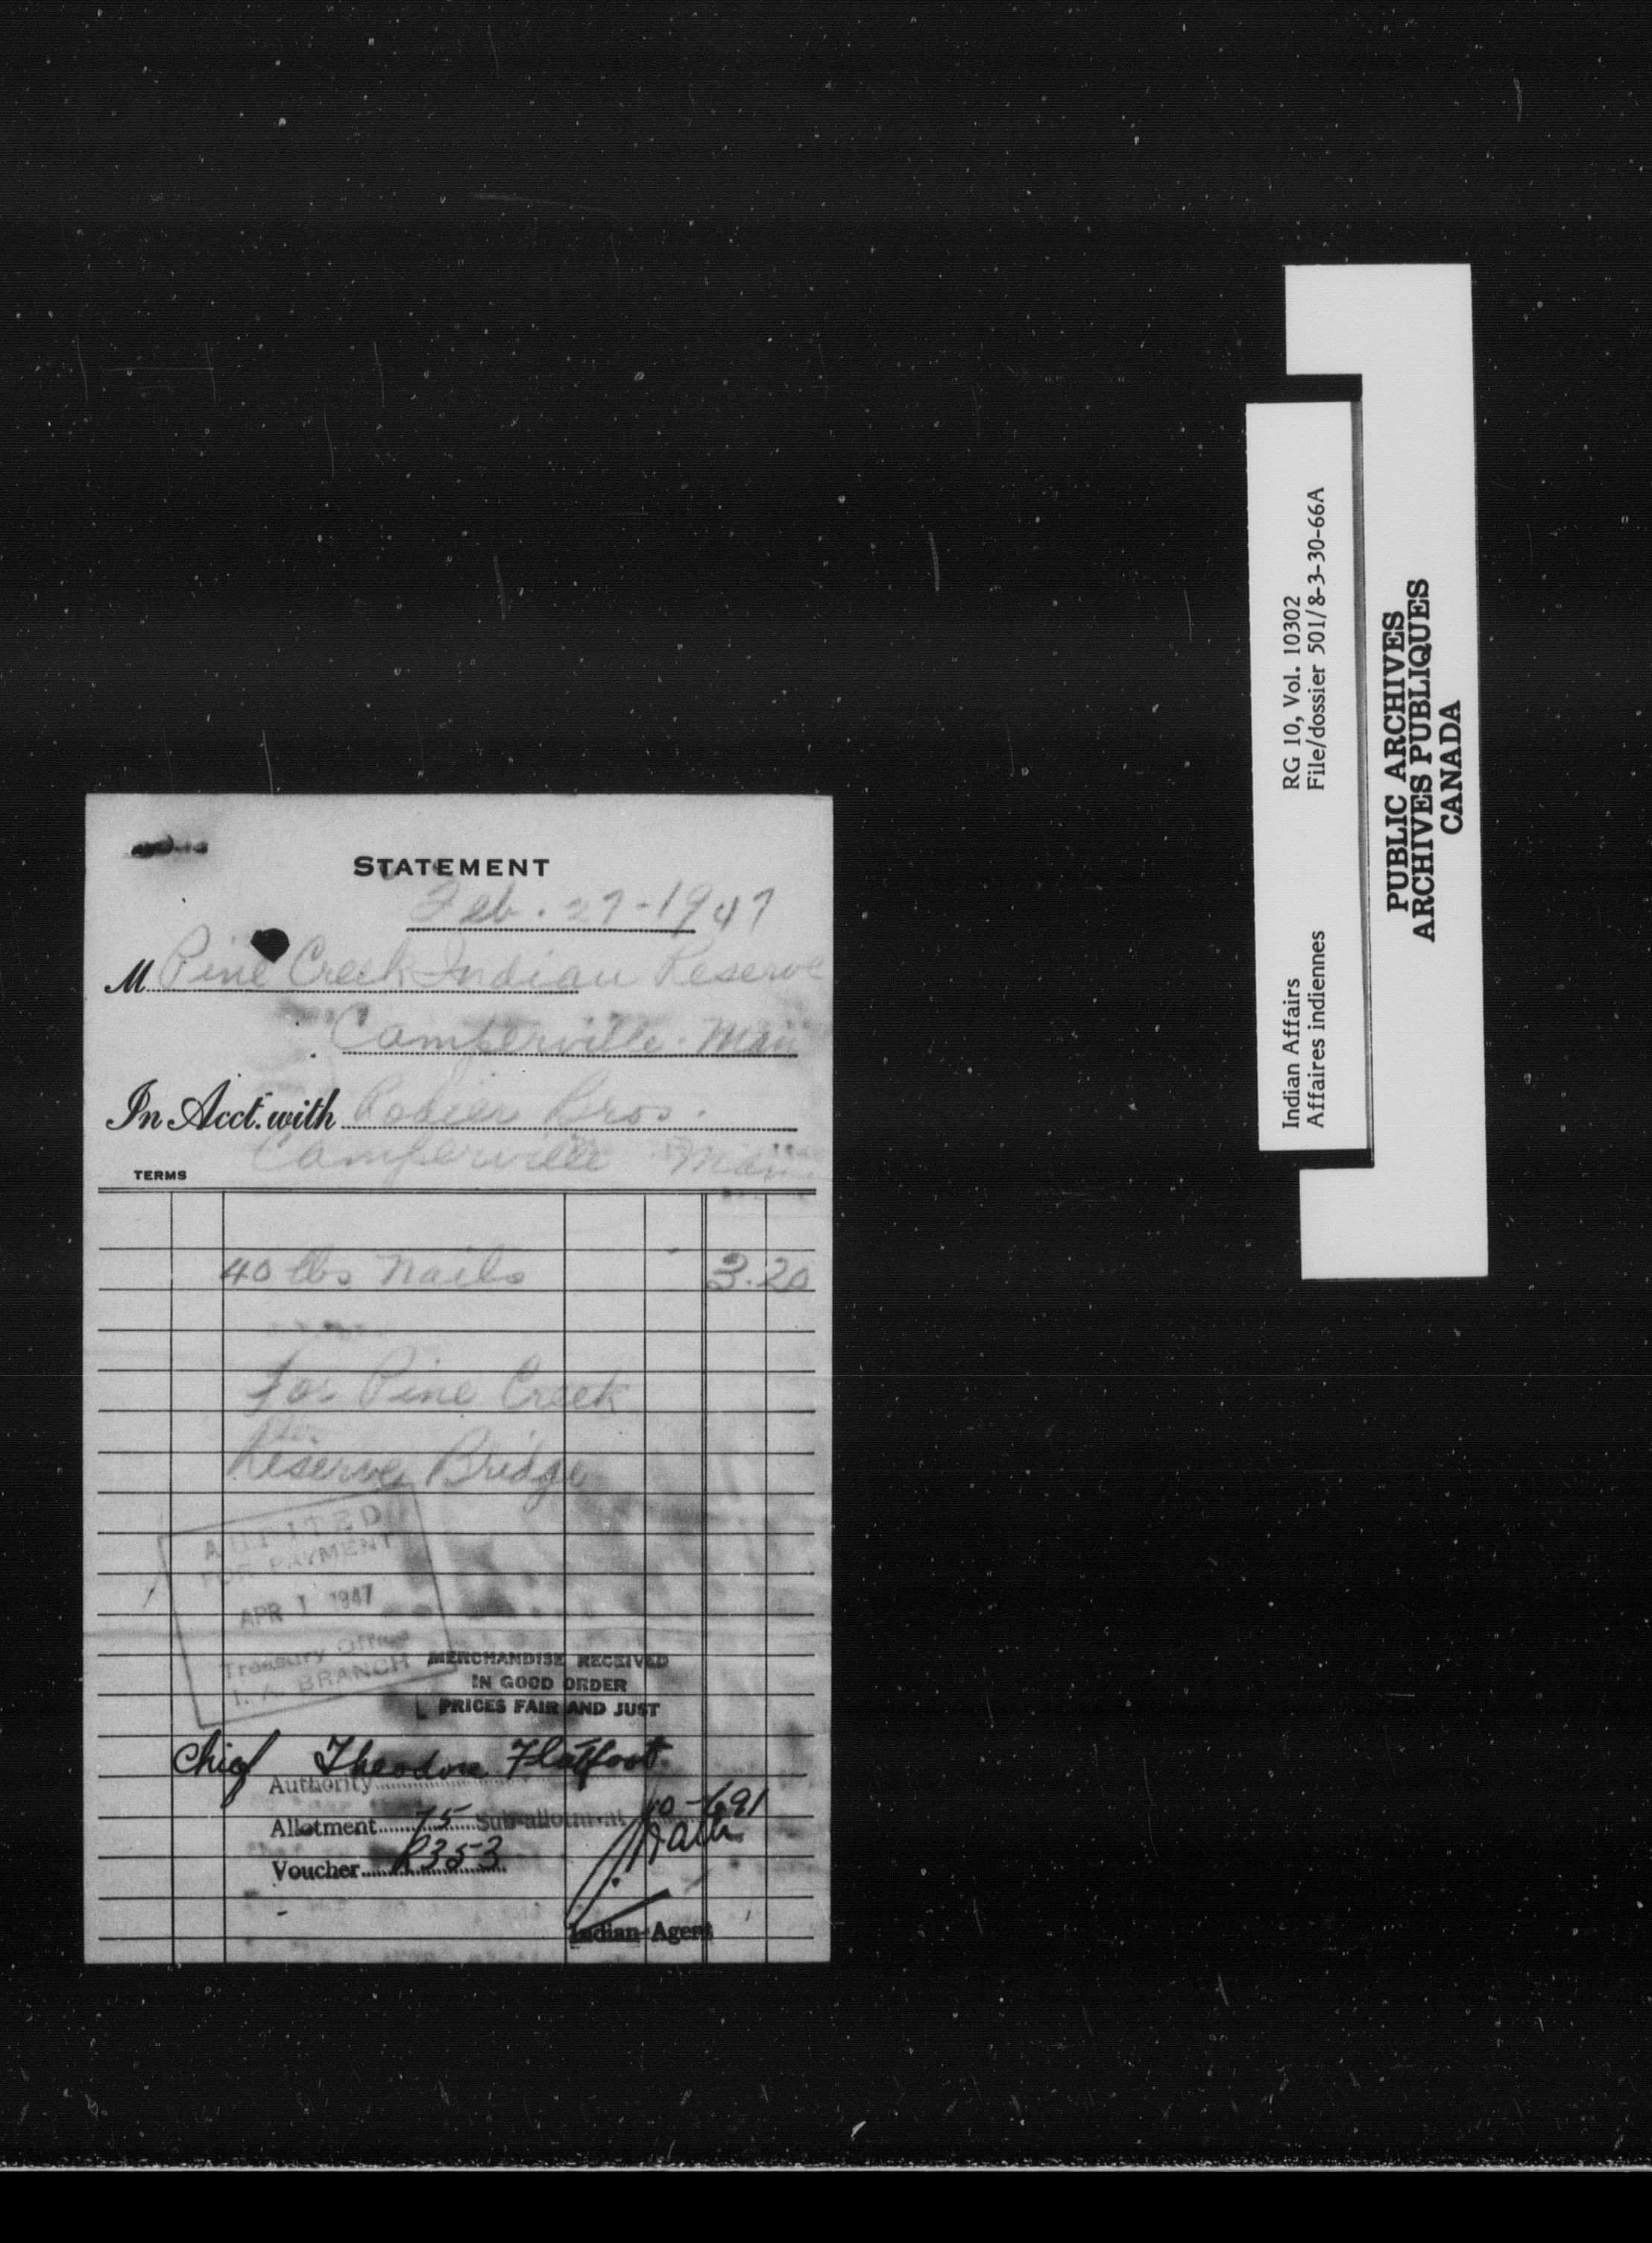 STATEMENT
Feb. 27-1947
M Pine Creek Indian Reserve
Camperville. Man
In Acct. with Bros.
Camperville Man
TERMS
40 lbs Nails 3.20
for Pine Creek
Reserve Bridge
AUDITED
FOR PAYMENT
APR 1 1947
Treasury Office
I. A. BRANCH
MERCHANDISE RECEIVED
IN GOOD ORDER
PRICES FAIR AND JUST
Chief Theodore Flatfoot.
Authority
Allotment 75 Sub-allotment 10-691
Voucher R353
Indian Agent
Indian Affairs RG 10, Vol. 10302
Affaires indiennes File/dossier 501/8-3-30-66A
PUBLIC ARCHIVES
ARCHIVES PUBLIQUES
CANADA